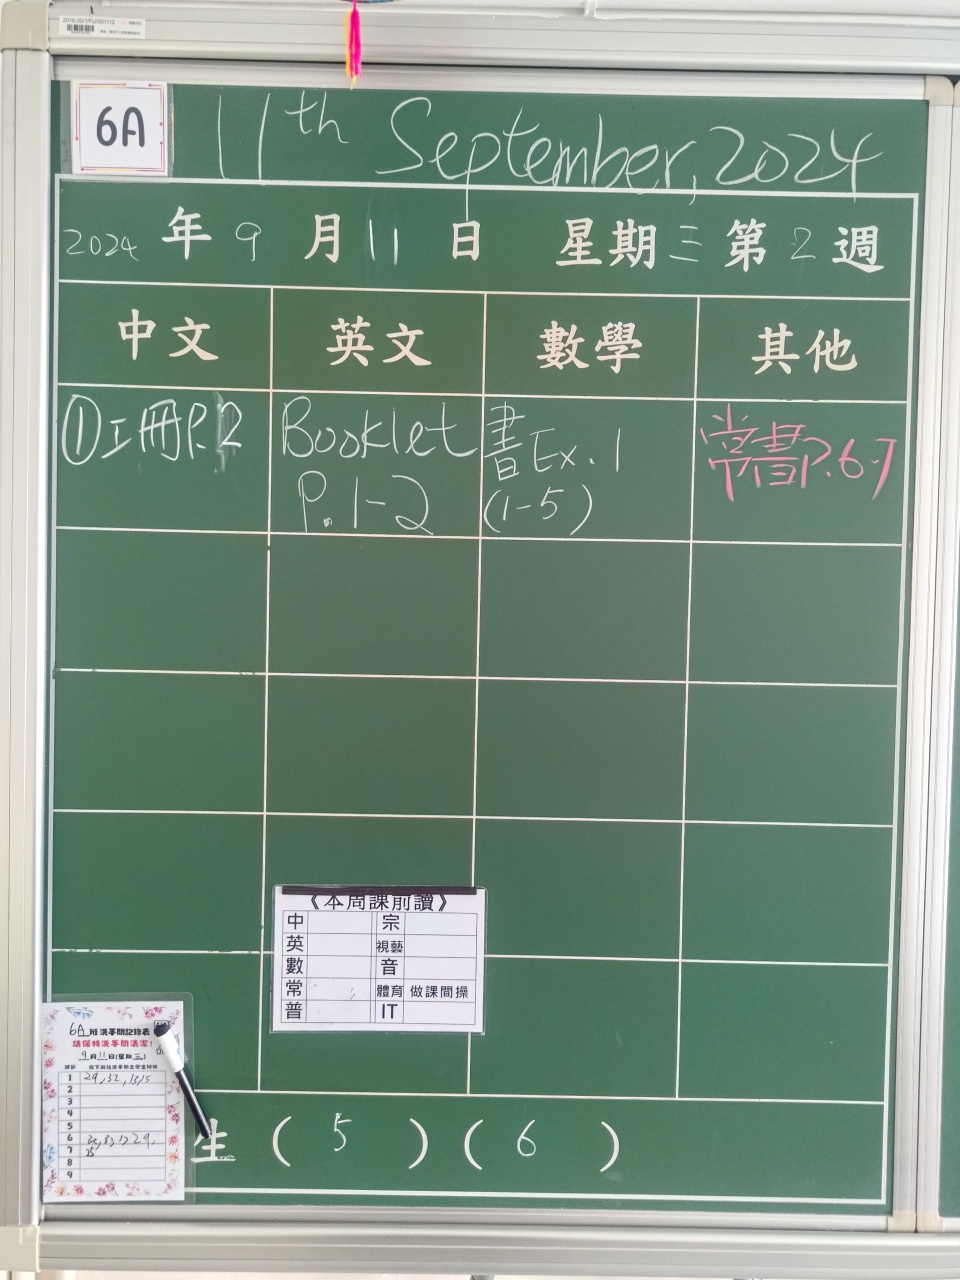 6A
11th September, 2024
2024 年 9 月 11 日 星期三 第 2 週
中文 英文 數學 其他
①工冊P.2
Booklet
P.1-2
書Ex.1
(1-5)
常書P.6-7
《本周課前讀》
中 宗
英 視藝
數 音
常 體育 做課間操
普 IT
6A 班洗手間記錄表
請保持洗手間清潔!
9月11日(星期三)
1 29,32,13,15
2
3
4
5
6
7
8
9
生 ( 5 ) ( 6 )